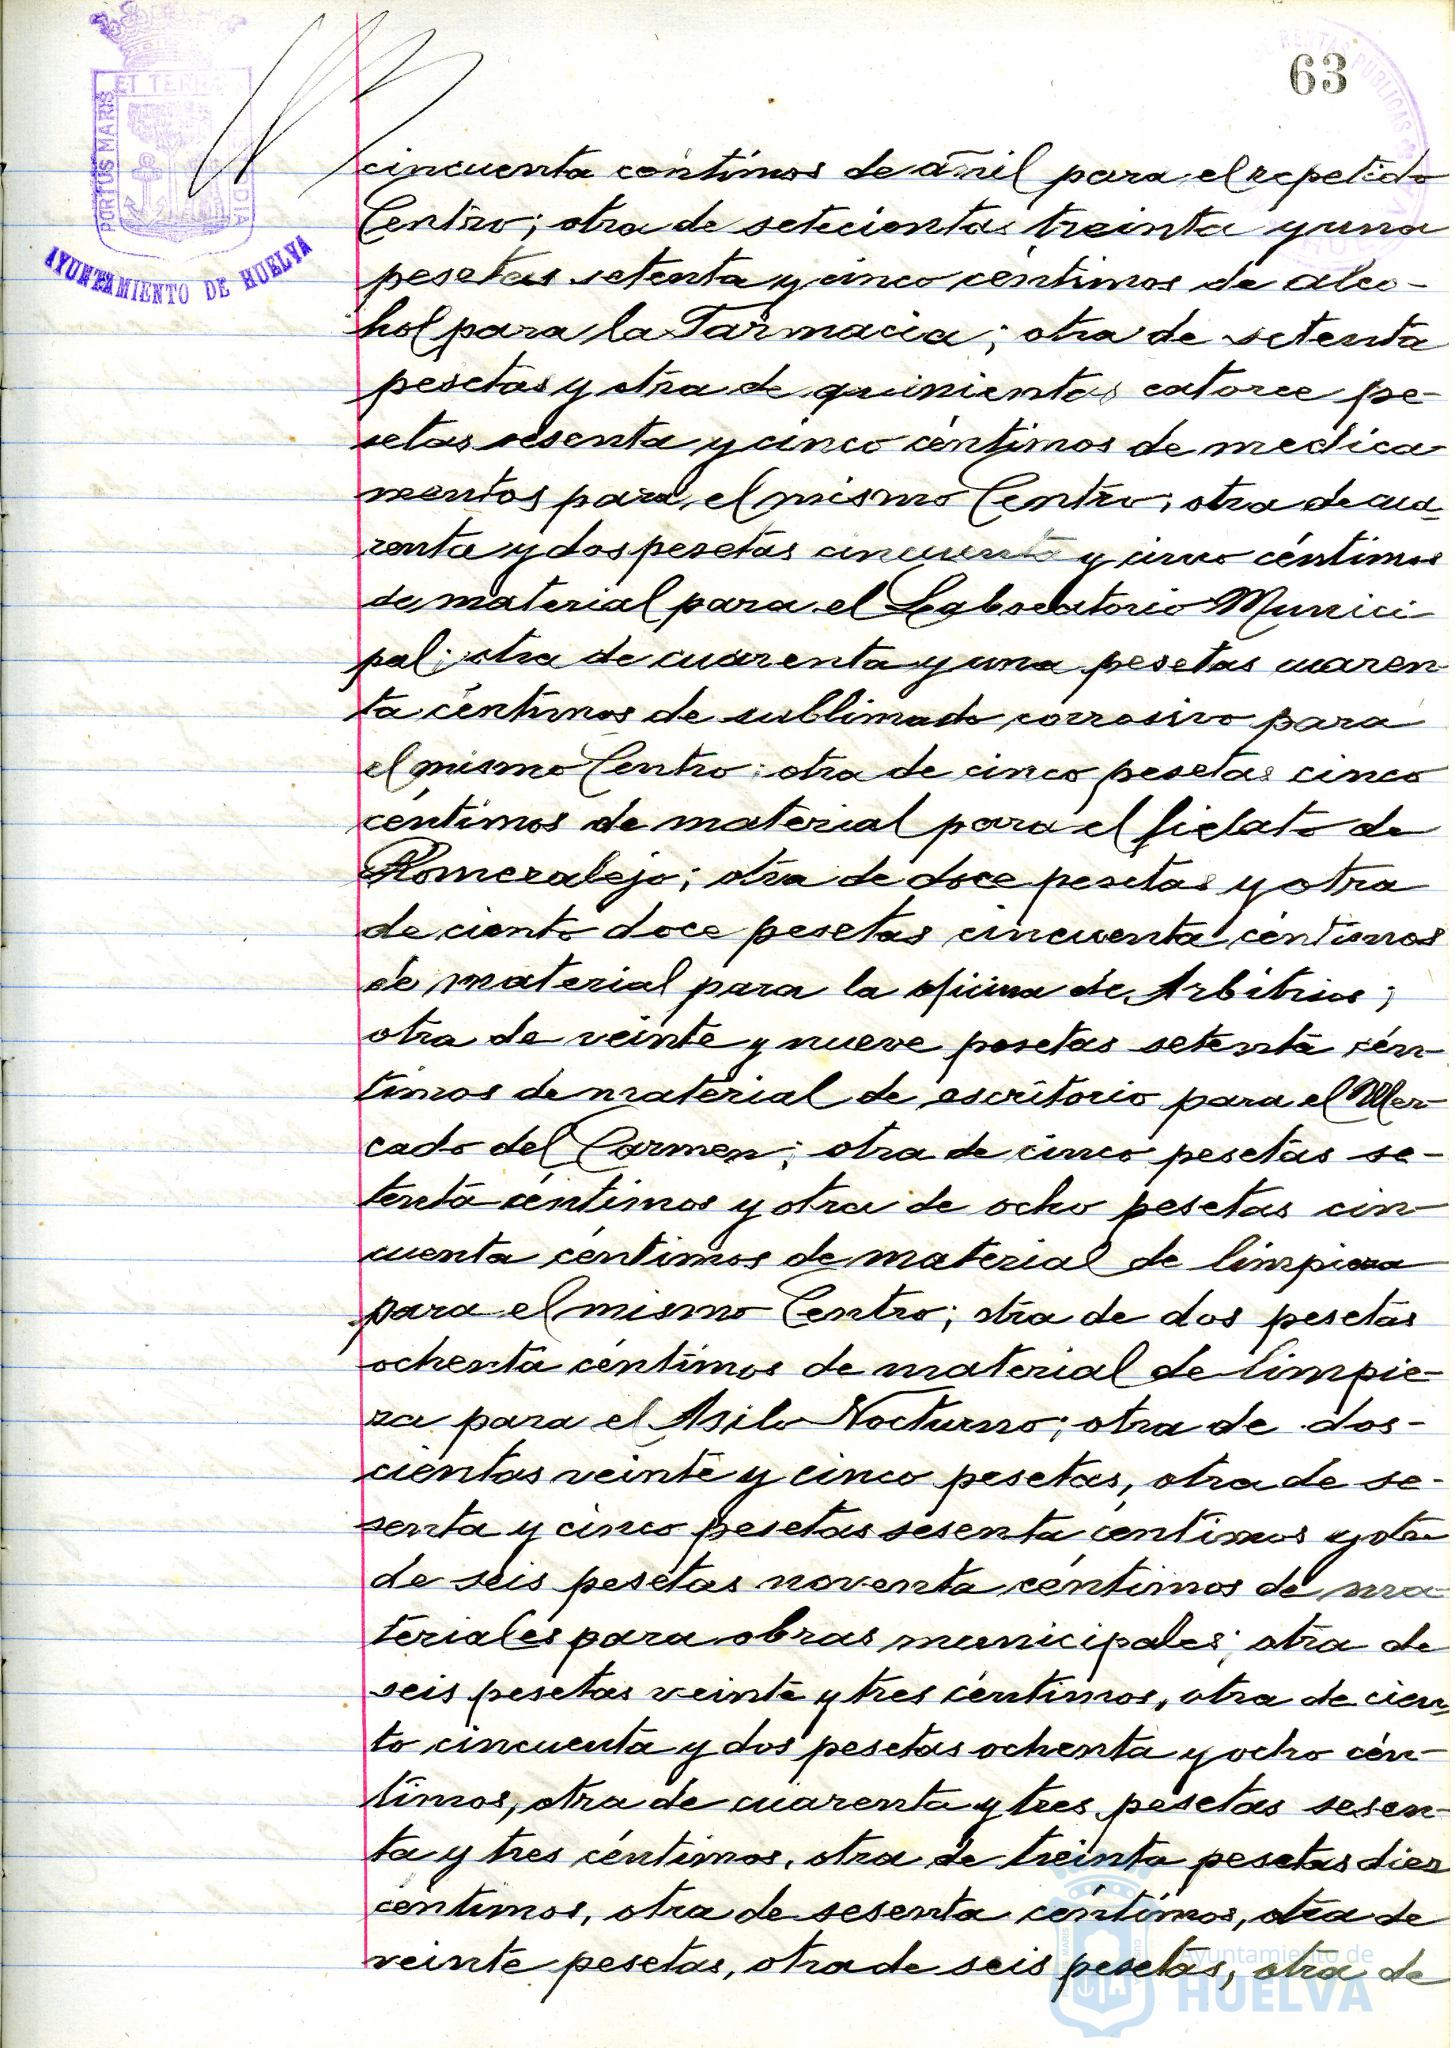 63
ET TERRÆ
PORTUS MARIS
AYUNTAMIENTO DE HUELVA
cincuenta céntimos de añil para el repetido
Centro; otra de setecientas treinta y una
pesetas setenta y cinco céntimos de alco-
hol para la Farmacia; otra de setenta
pesetas y otra de quinientas catorce pe-
setas sesenta y cinco céntimos de medica-
mentos para el mismo Centro; otra de cua-
renta y dos pesetas cincuenta y cinco céntimos
de material para el Laboratorio Munici
pal; otra de cuarenta y una pesetas cuaren-
ta céntimos de sublimado corrosivo para
el mismo Centro; otra de cinco pesetas cinco
céntimos de material para el fielato de
Romeralejo; otra de doce pesetas y otra
de ciento doce pesetas cincuenta céntimos
de material para la oficina de Arbitrios;
otra de veinte y nueve pesetas setenta cén-
timos de material de escritorio para el Mer-
cado del Carmen; otra de cinco pesetas se-
tenta céntimos y otra de ocho pesetas cin-
cuenta céntimos de material de limpieza
para el mismo Centro; otra de dos pesetas
ochenta céntimos de material de limpie-
za para el Asilo Nocturno; otra de dos-
cientas veinte y cinco pesetas, otra de se-
senta y cinco pesetas sesenta céntimos y otra
de seis pesetas noventa céntimos de ma-
teriales para obras municipales; otra de
seis pesetas veinte y tres céntimos, otra de cien-
to cincuenta y dos pesetas ochenta y ocho cén-
timos, otra de cuarenta y tres pesetas sesen-
ta y tres céntimos, otra de treinta pesetas diez
céntimos, otra de sesenta céntimos, otra de
veinte pesetas, otra de seis pesetas, otra de
Ayuntamiento de
HUELVA